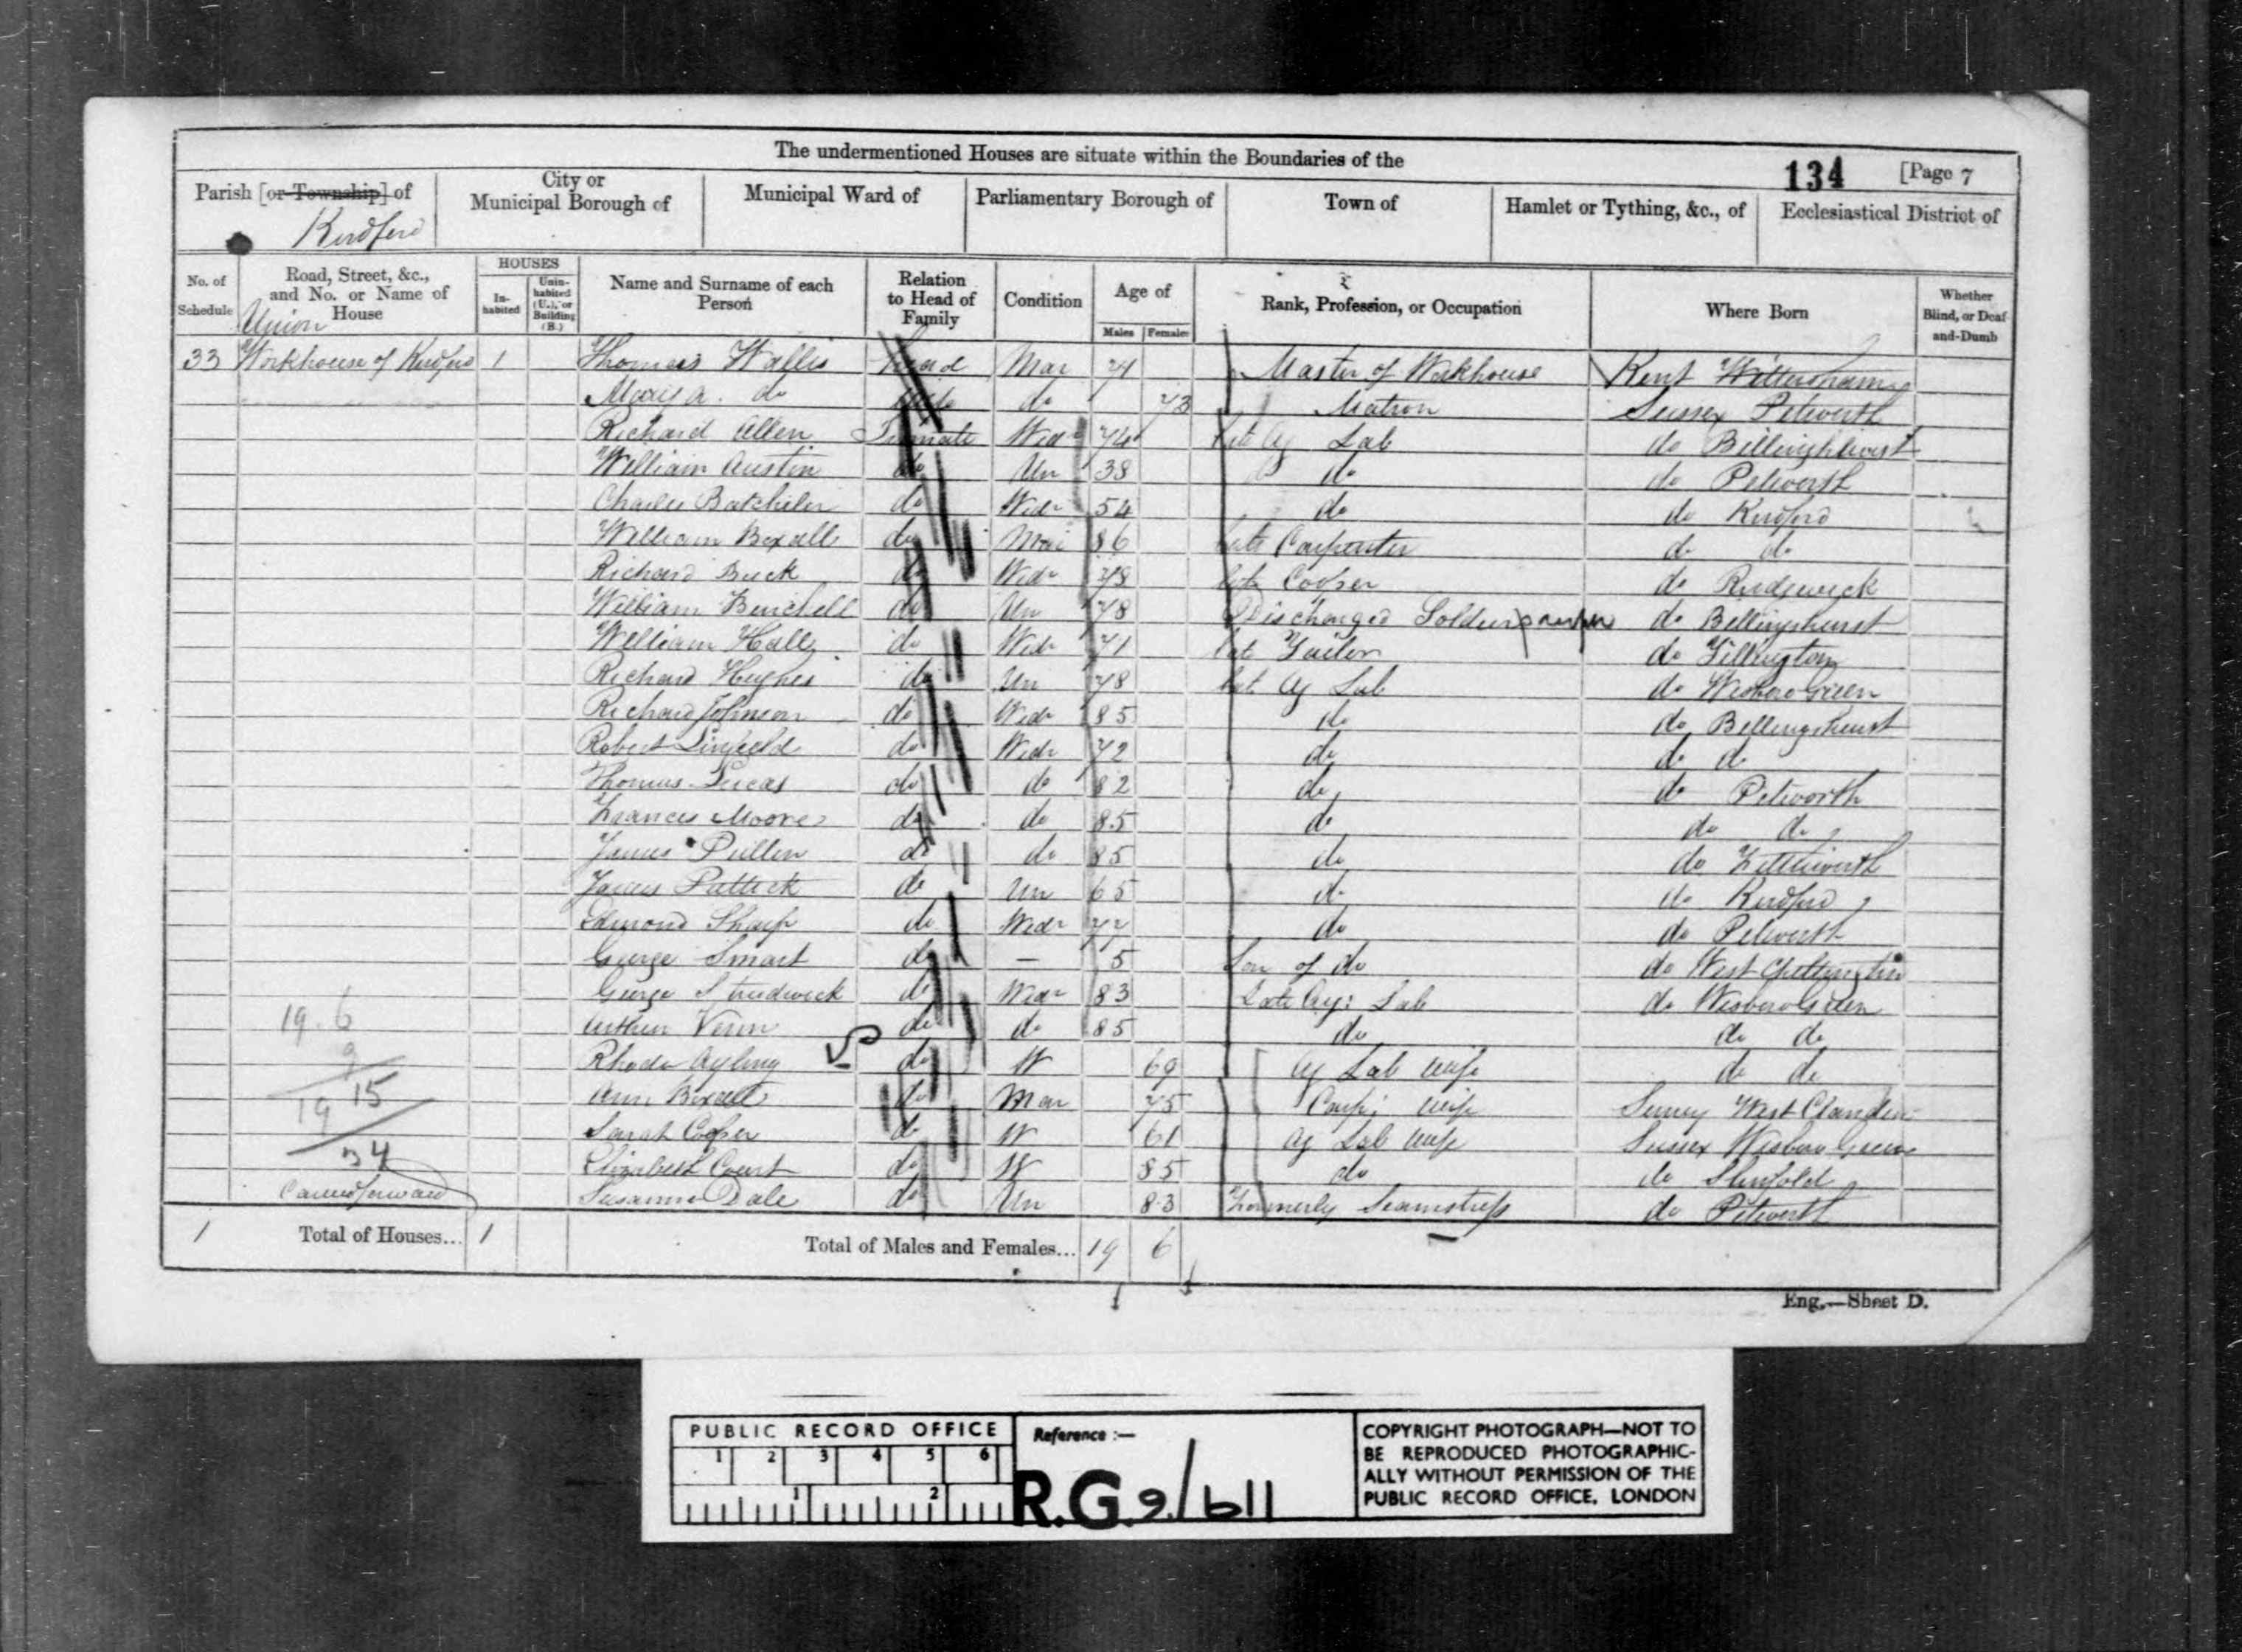 The undermentioned Houses are situate within the Boundaries of the
134 [Page 7
Parish [or Township] of Kirdford
City or Municipal Borough of
Municipal Ward of
Parliamentary Borough of
Town of
Hamlet or Tything, &c., of
Ecclesiastical District of
No. of Schedule
Road, Street, &c., and No. or Name of House
HOUSES
In-habited
Unin-habited (U.), or Building (B.)
Name and Surname of each Person
Relation to Head of Family
Condition
Age of
Males Females
Rank, Profession, or Occupation
Where Born
Whether Blind, or Deaf-and-Dumb
Union
33 Workhouse of Kirdford 1 Thomas Wallis Head Mar 71 Master of Workhouse Kent Wittersham
Mary A. do Wife do 73 Matron Sussex Petworth
Richard Allen Inmate Widr 74 late Ag Lab do Billinghurst
William Austin do Un 38 do do Petworth
Charles Batchelor do Widr 54 do do Kirdford
William Boxall do Mar 86 late Carpenter do do
Richard Buck do Widr 78 late Cooper do Rudgwick
William Burchell do Un 78 Discharged Soldier do Billingshurst
William Hall do Widr 71 late Tailor do Tillington
Richard Hughes do Un 78 late Ag Lab do Wisboro Green
Richard Johnson do Widr 85 do do Billingshurst
Robert Linfield do Widr 72 do do do
Thomas Lucas do do 82 do do Petworth
Francis Moore do do 85 do do do
James Pullen do do 85 do do Fittleworth
James Puttick do Un 65 do do Kirdford
Edmond Sharp do Widr 72 do do Petworth
George Smart do — 5 Son of do do West Chiltington
George Strudwick do Widr 83 Late Ag: Lab do Wisboro Green
Arthur Venn do do 85 do do do
Rhoda Ayling do W 69 Ag Lab wife do do
Ann Boxall do Mar 75 Carp: wife Surrey West Clandon
Sarah Cooper do W 61 Ag Lab wife Sussex Wisboro Green
Elizabeth Court do W 85 do do
Susanna Dale do Un 83 Formerly Seamstress do Petworth
19.6
9
19 15
34
Carried forward
1 Total of Houses... 1 Total of Males and Females... 19 6
Eng.—Sheet D.
PUBLIC RECORD OFFICE
1 2 3 4 5 6
1 2
Reference :—
R.G.9/611
COPYRIGHT PHOTOGRAPH—NOT TO
BE REPRODUCED PHOTOGRAPHIC-
ALLY WITHOUT PERMISSION OF THE
PUBLIC RECORD OFFICE, LONDON